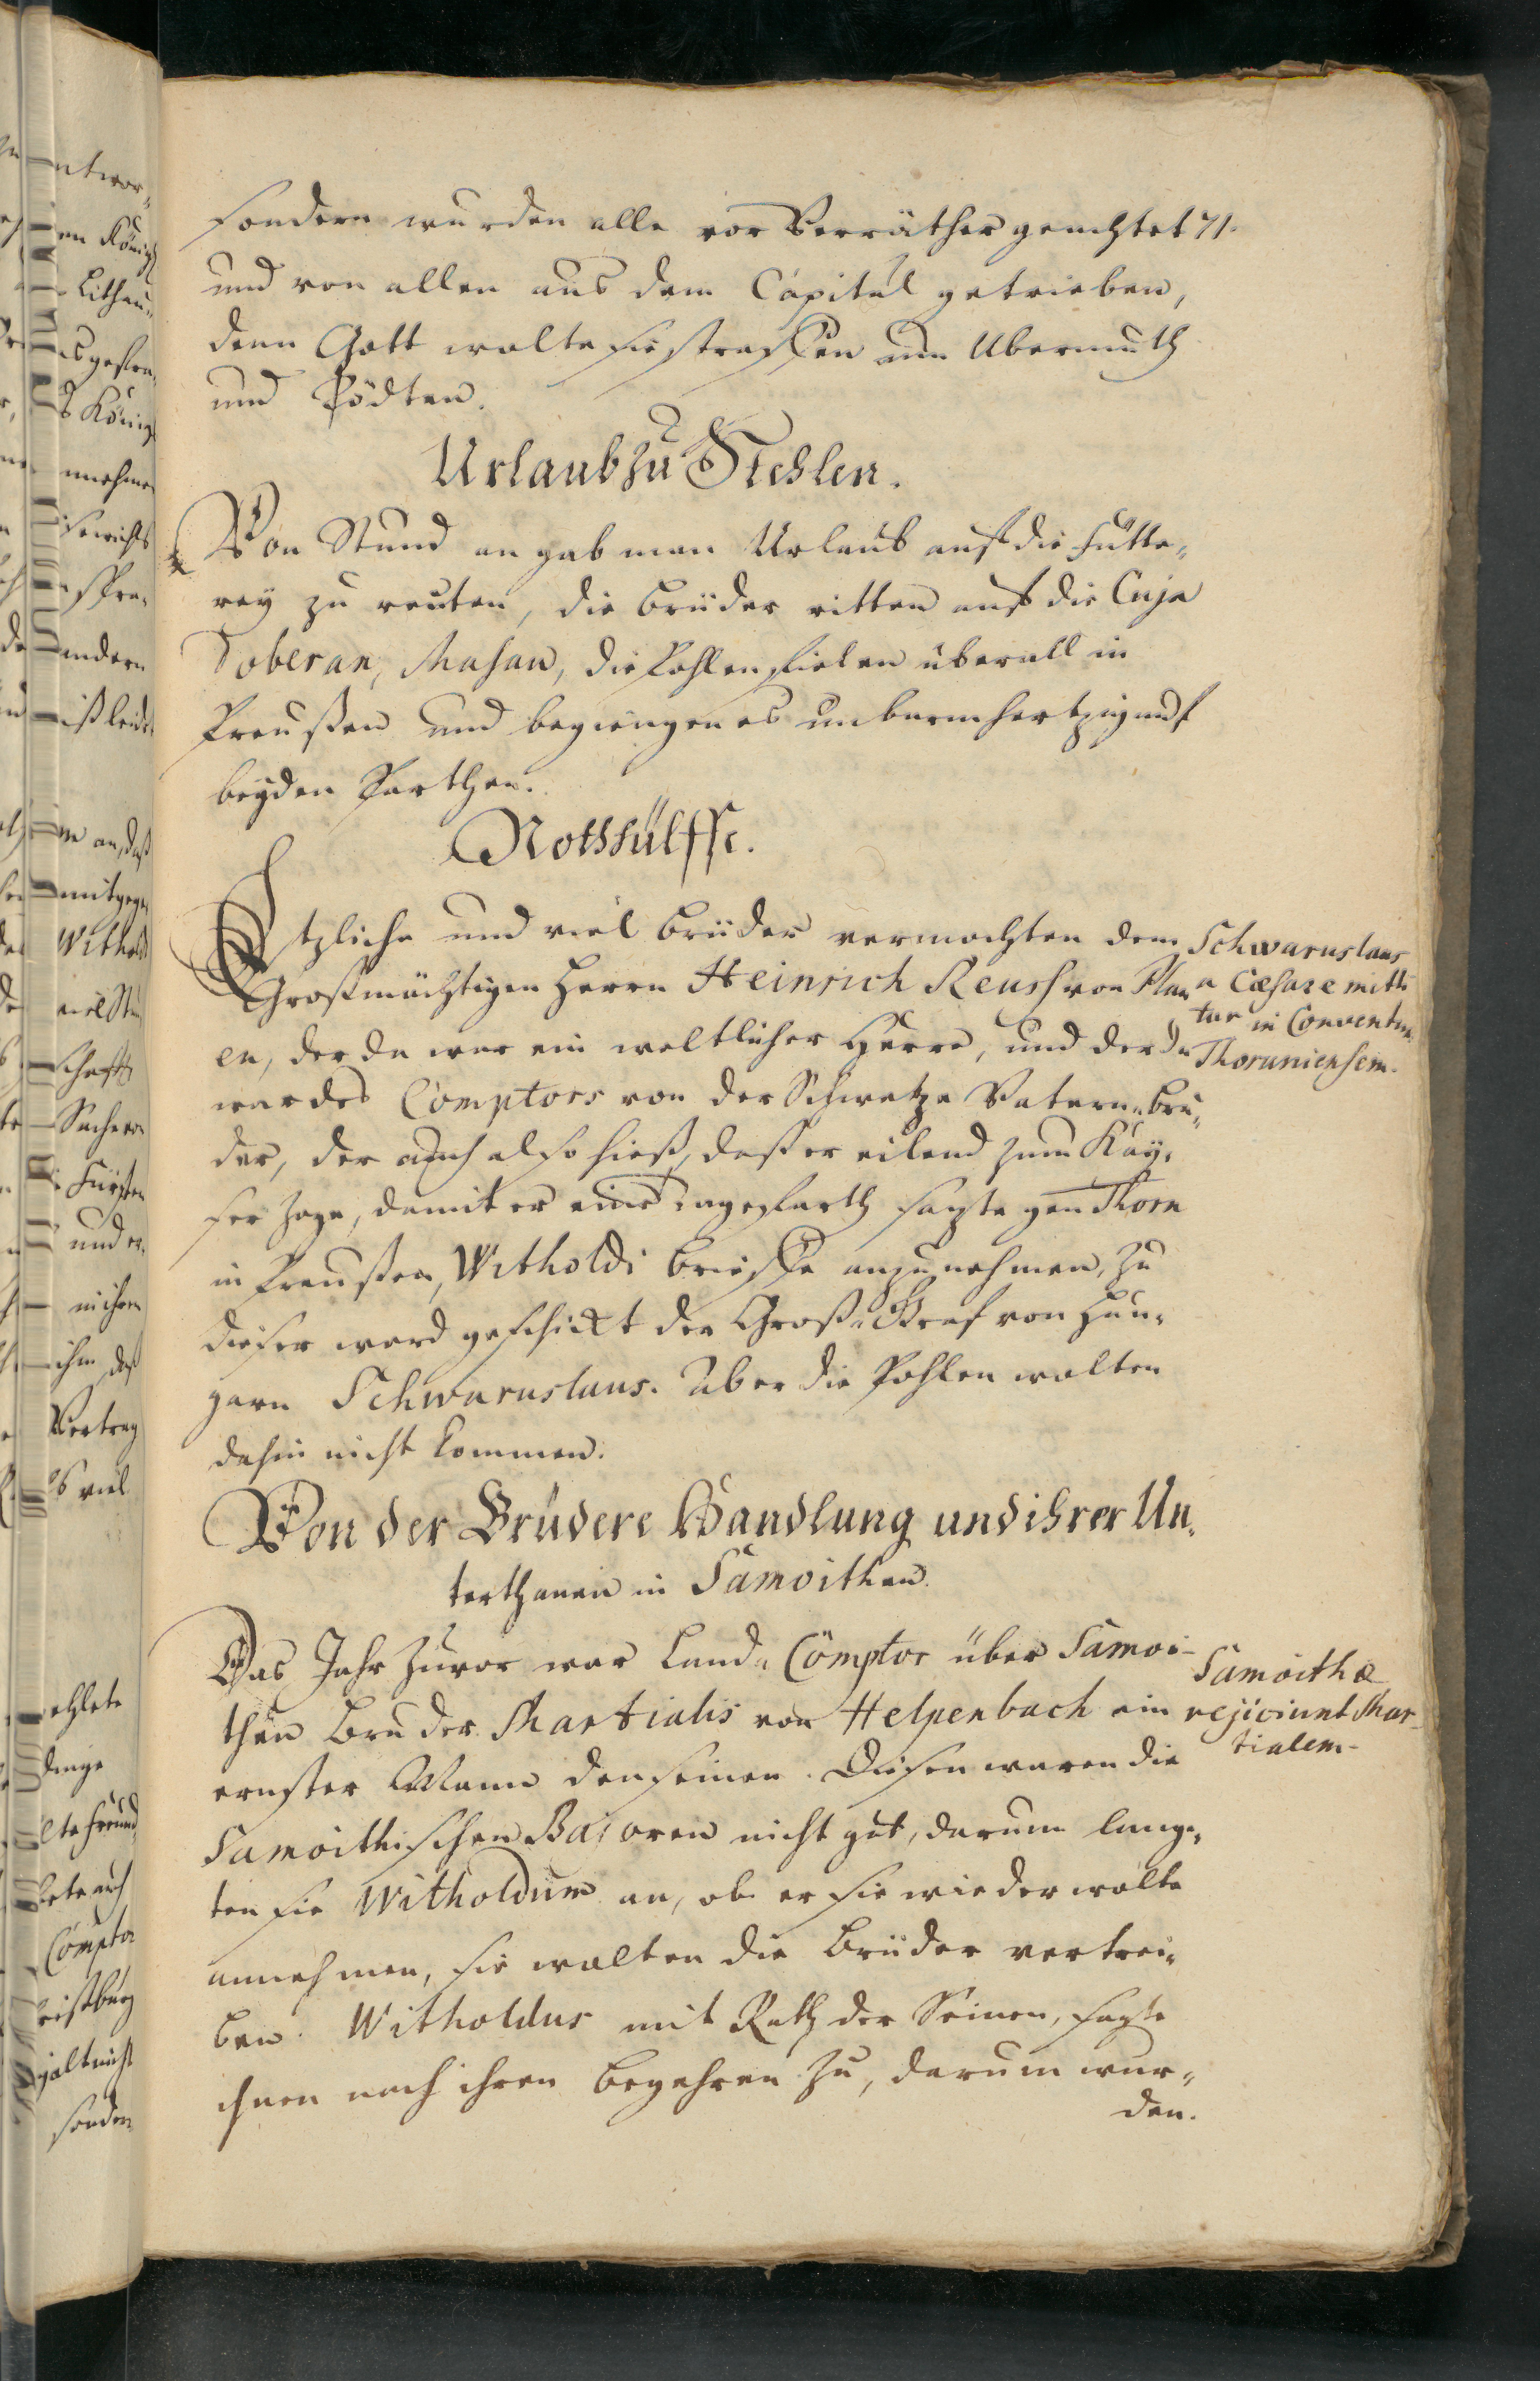 sondern wurden alle vor Verräther geachtet 71.
und von allen aus dem Capitul getrieben,
denn Gott wolte sie straffen um Ubermuth
und Tödten.
Urlaub zu Stehlen.
Von Stund an gab man Urlaub auf die Fütte„
rey zu reuten, die brüder ritten auf die Cuja
Doberan, Masau, die Pohlen fielen überall in
Preußen und begiengen es unbarmhertzig auf
beyden Parthen.
Nothhülffe.
Etzliche und viel brüder vermochten dem
Großmächtigen Herrn Heinrich Reuss von Plau
en, der da war ein weltlicher Herre, und der da
war des Comptors von der Schwetze Vatern„bru„
der, der auch also hieß, daß er eilend zum Kay„
ser zoge, damit er eine tagefarth sagte gen Thorn
in Preußen, Witholdi brieffe anzunehmen, zu
dieser ward geschickt der Groß„Graf von Hun„
garn Schwaruslaus. Aber die Pohlen wolten
dahin nicht kommen.
Schwaruslaus
a Cæsare mitti
tur in Conventum
Thoruniensem.
Von der Brüdere Handlung und ihrer Un„
terthanen in Samoithen.
Das Jahr zuvor war Land„Comptor über Samoi-
then Bruder Martialis von Helpenbach ein
ernster Mann den seinen. Diesen waren die
Samoithischen Bajoren nicht gut, darum lang„
ten sie Witholdum an, ob er sie wieder wolte
annehmen, sie wolten die brüder vertrei„
ben. Witholdus mit Rath der Seinen, sagte
ihnen nach ihren begehren zu, darum wur„
den.
Samoithæ
rejiciunt Mar-
tialem.